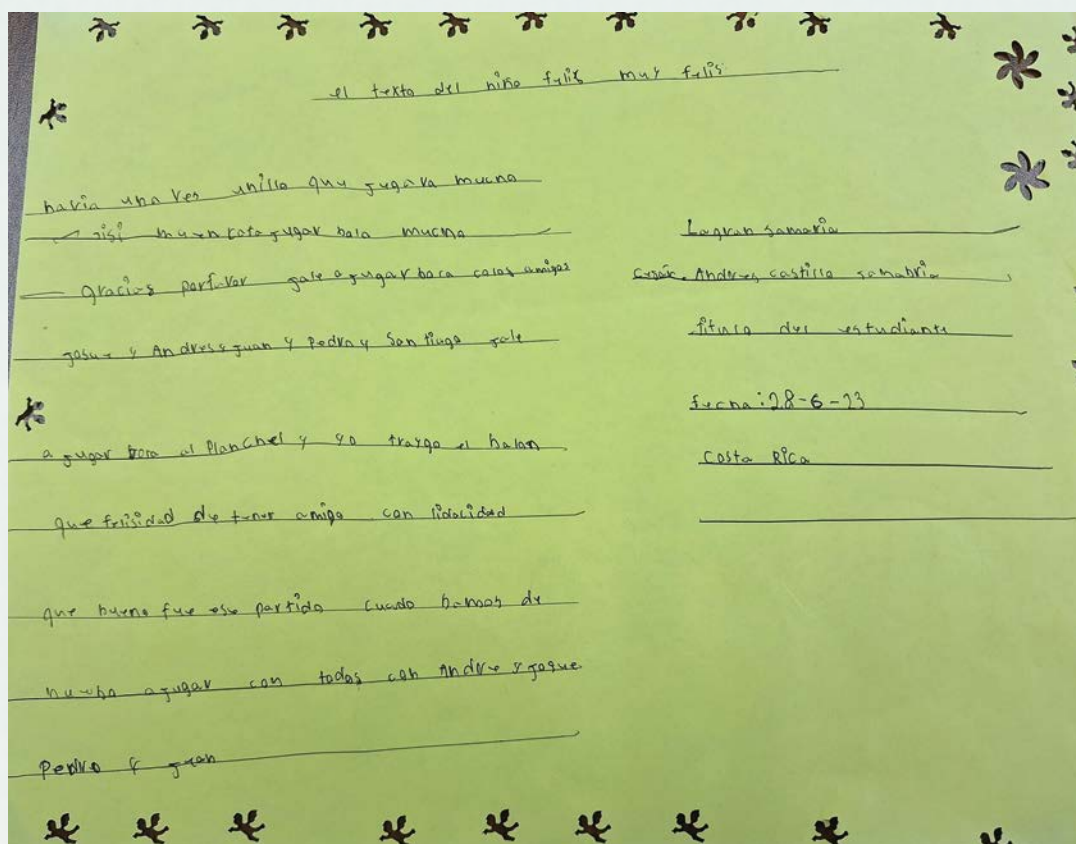 el texto del niño felis muy felis
havia una ves unillo que jugava mucno
muencata jugar bola mucno
gracias porfavor jale a jugar boca colos amigos
josue y Andres y juan y Pedro y Santiago jale
a jugar bora al Planchel y yo traygo el balan
que felisidad de tener amigo con lidalidad
que bueno fue ese partido cuado bamos de
nuebo a jugar con todos con Andre y josue
Pedro y juan
Lagran samaria
Andres castillo samabria
titulo del estudiante
fecha: 28-6-23
Costa Rica